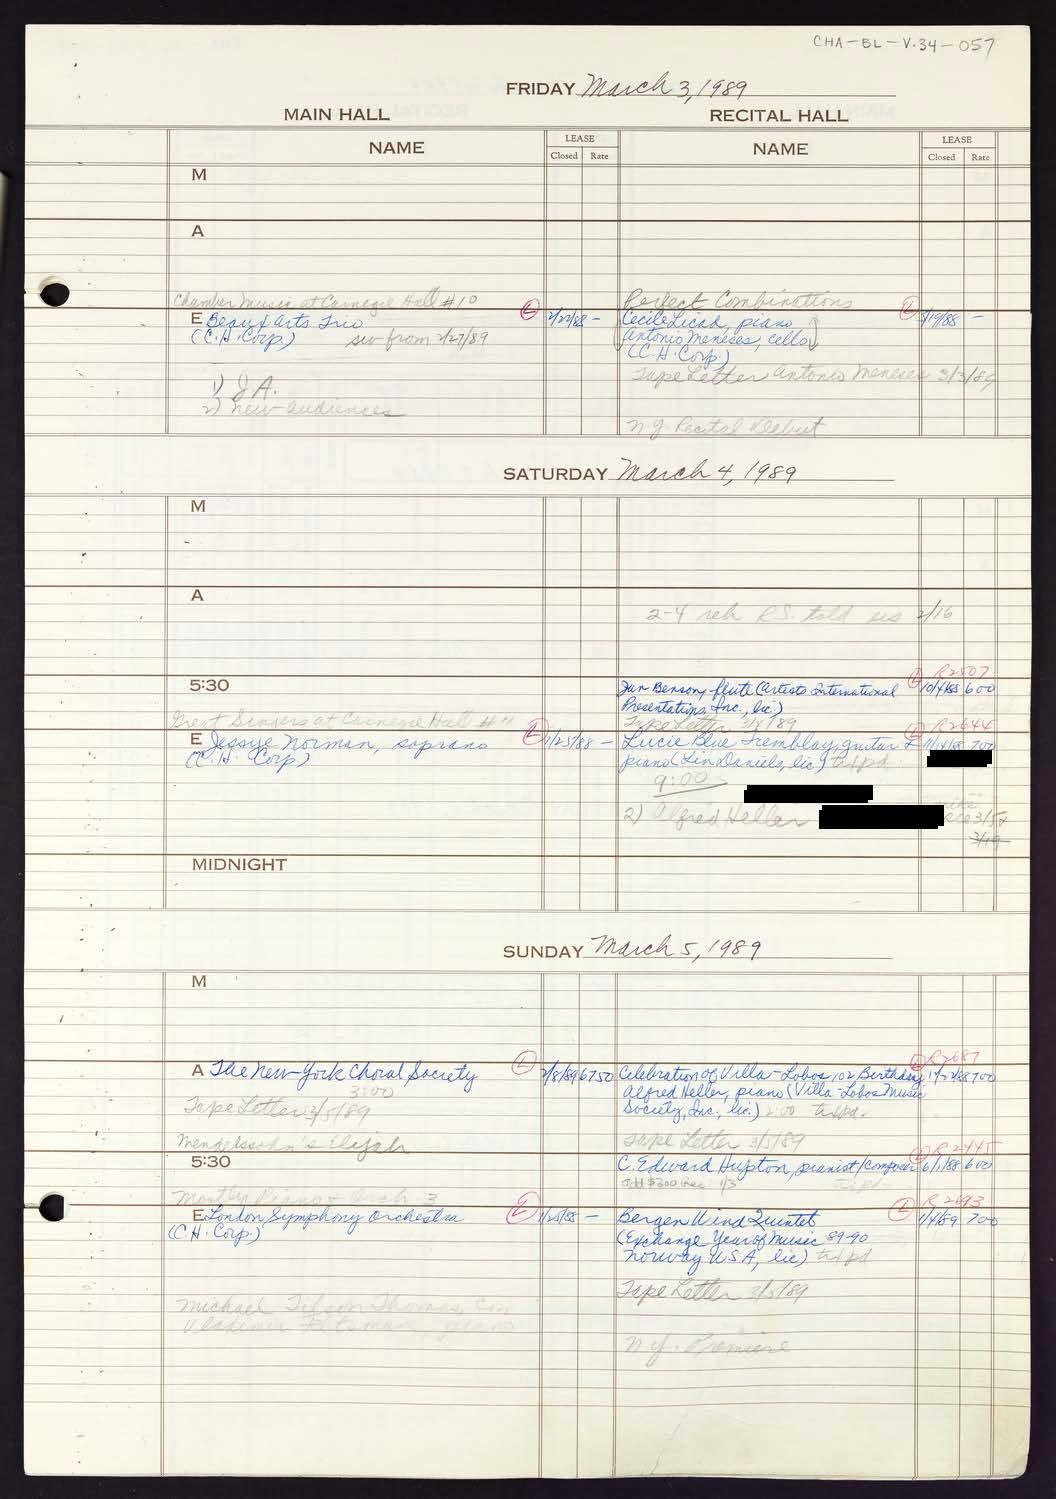 CHA-BL-V.34-057
FRIDAY March 3, 1989
MAIN HALL
RECITAL HALL
NAME
LEASE
Closed Rate
NAME
LEASE
Closed Rate
M
A
Chamber Music at Carnegie Hall #10
E Beaux Arts Trio
(C.H. Corp.) sw from 2/27/89
L 2/22/88 -
1) J.A.
2) New Audiences
Perfect Combinations
Cecile Licad, piano
Antonio Meneses, cello
(C.H. Corp)
L /19/88 -
Tape Letter Antonio Meneses 3/3/89
N.Y. Recital Debut
SATURDAY March 4, 1989
M
A
2-4 reh R.S. told 2/16
5:30
R2507
Jan Benson, flute (Artists International L 10/4/88 600
Presentations, Inc., lic)
Tape Letter 3/4/89
Great Singers at Carnegie Hall
E Jessye Norman, soprano L 1/25/88 -
(C.H. Corp)
R2644
Lucie Blue Tremblay, guitar & L 11/14/88 700
piano (Lin Daniels, lic)
9:00
2) Alfred Heller
3/5
3/19
MIDNIGHT
SUNDAY March 5, 1989
M
A The New York Choral Society L 2/8/89 6750
3:00
Tape Letter 3/5/89
Mendelssohn's Elijah
L R2687
Celebration of Villa-Lobos, 102 Birthday 700
Alfred Heller, piano (Villa-Lobos Music
Society, Inc., lic.) 2:00
Tape Letter 3/5/89
5:30
L R2445
C. Edward Hupton, pianist/composer 6/1/88 600
$300
Mostly Piano & Orch 3
E London Symphony Orchestra L 1/25/88 -
(C.H. Corp.)
Michael Tilson Thomas, con
Vladimir Feltsman, piano
R2693
Bergen Wind Quintet L 1/4/89 700
(Exchange Year of Music 89-90
Norway U.S.A, lic)
Tape Letter 3/5/89
N.Y. Premiere